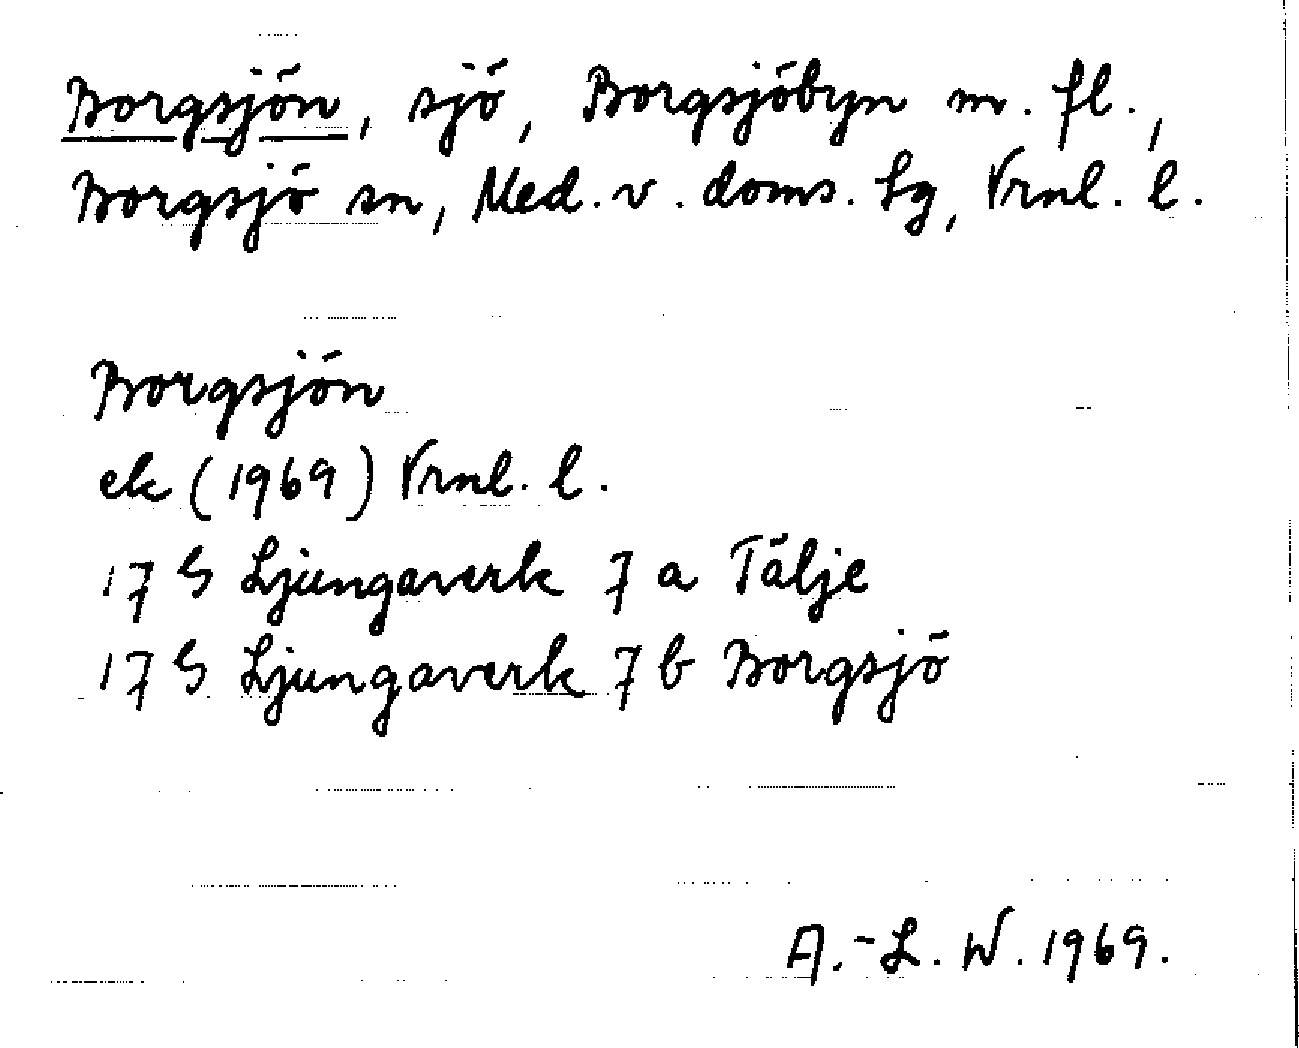 Borgsjön, sjö, Borgsjöbyn m. fl.,
Borgsjö sn, Med. v. doms. lg, Vrnl. l.
Borgsjön
ek (1969) Vrnl. l.
17 G Ljungaverk 7 a Tälje
17 G Ljungaverk 7 b Borgsjö
A.-L. W. 1969.